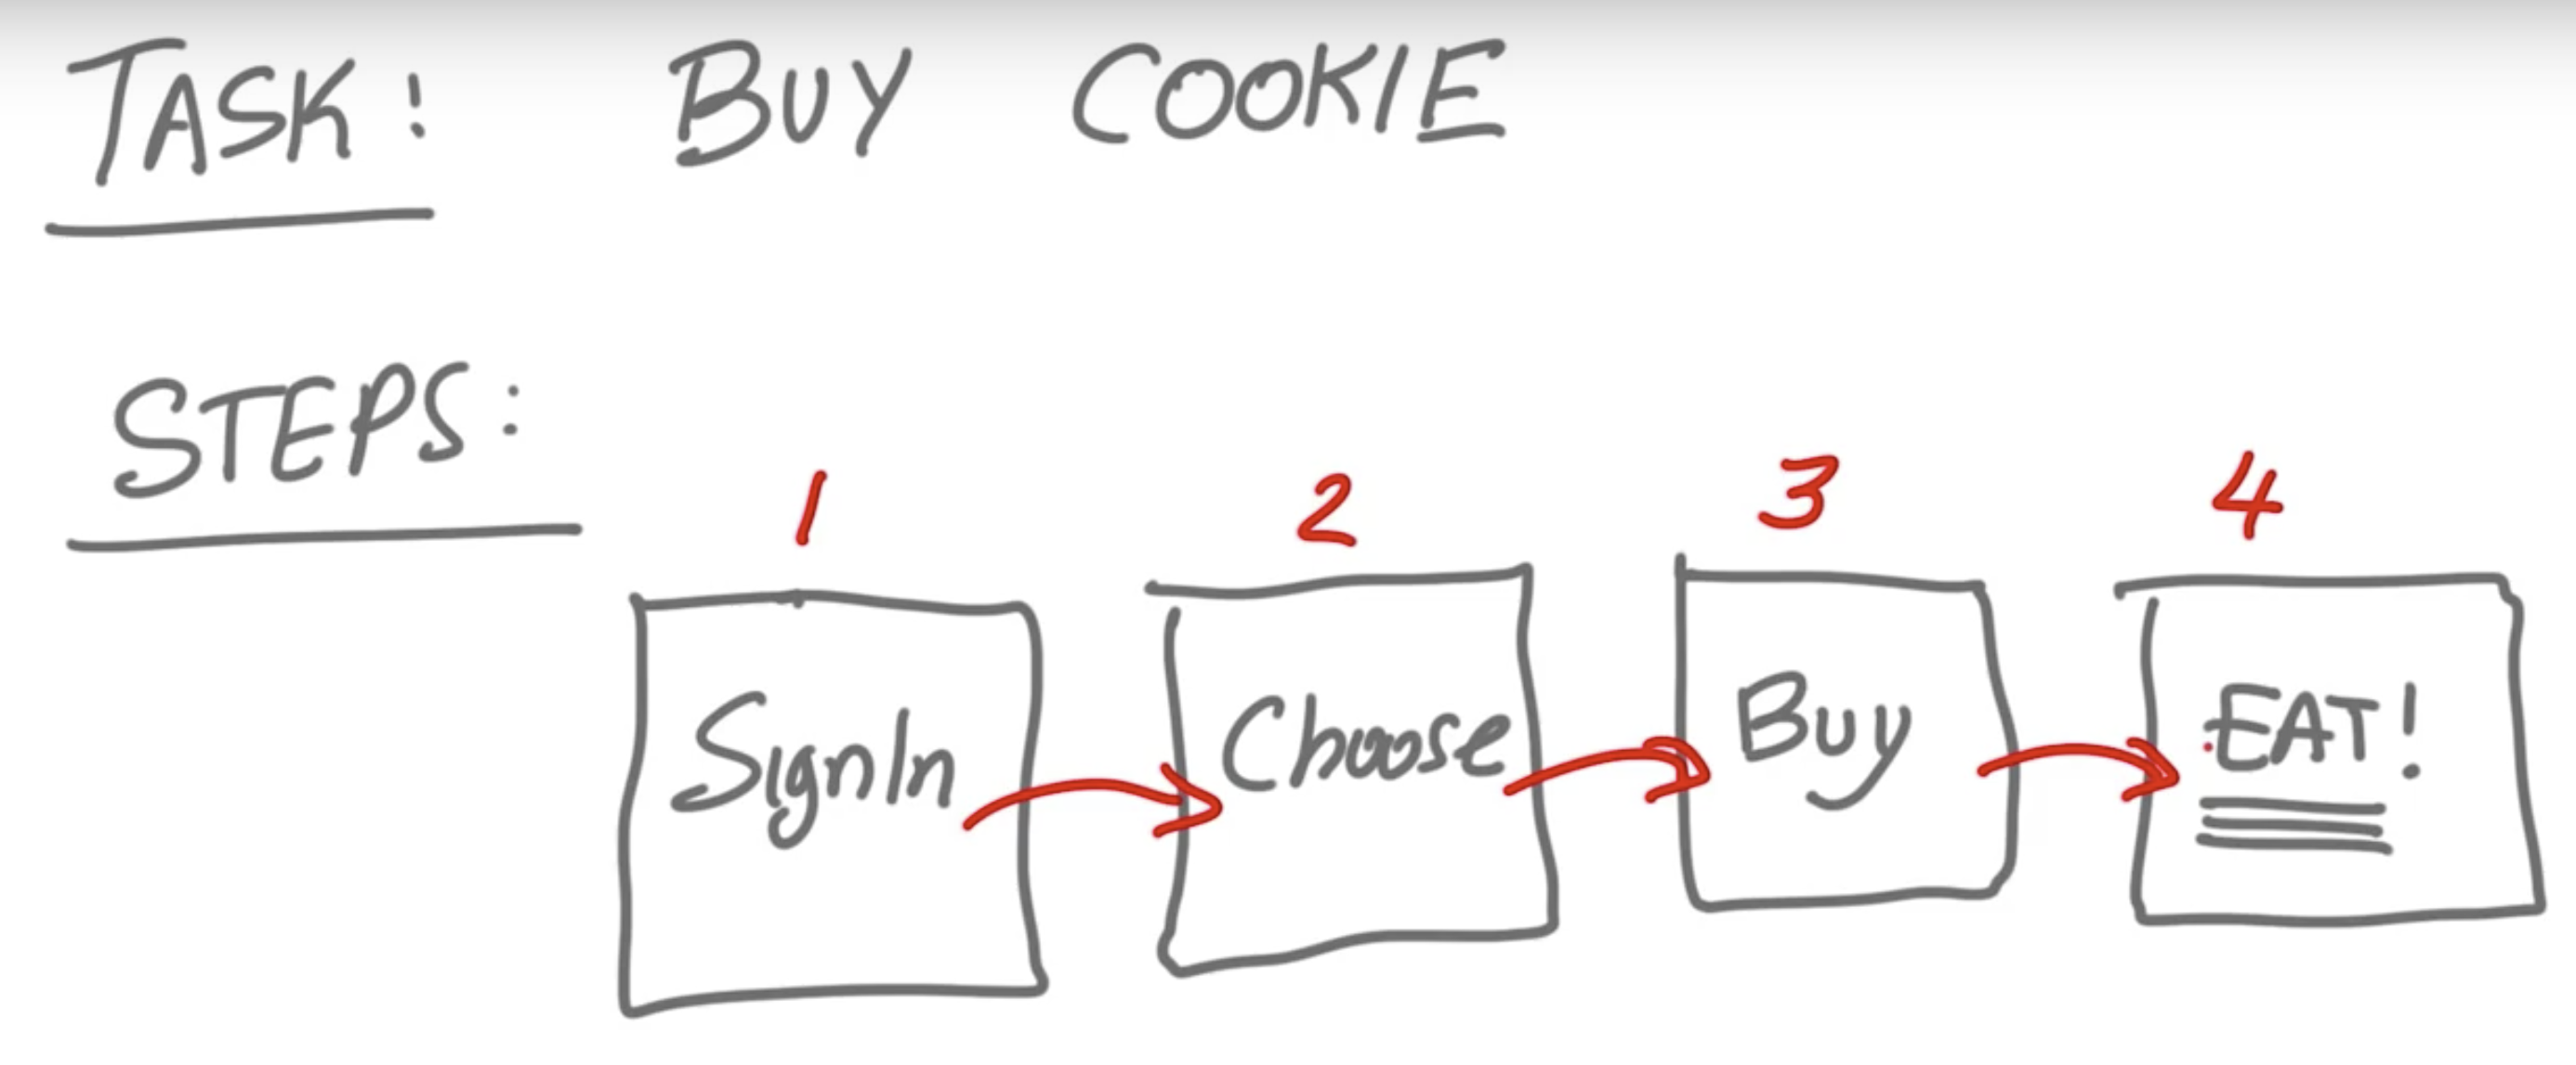 TASK! BUY COOKIE
STEPS:
1 2 3 4
SignIn Choose Buy EAT!